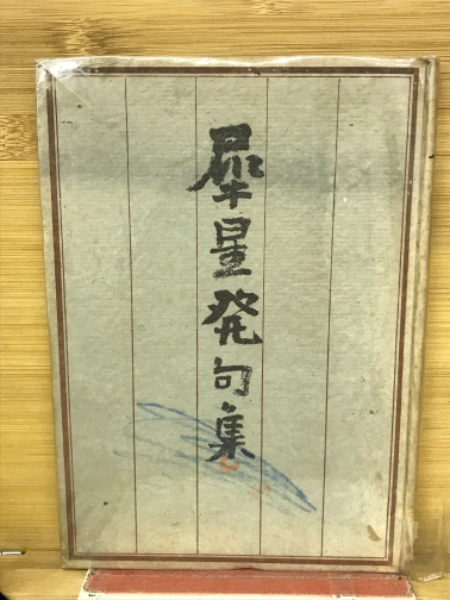 犀星発句集